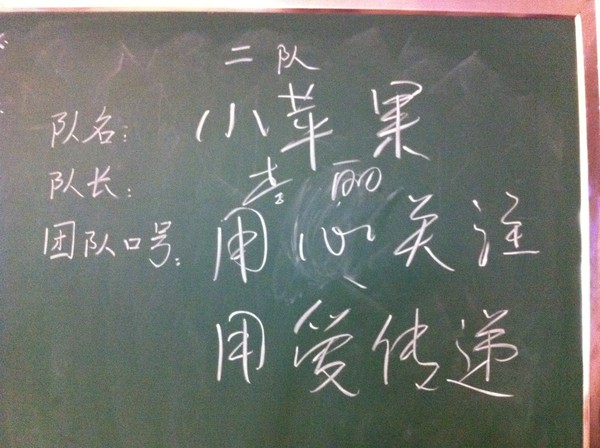 二队
队名：小苹果
队长：
团队口号：用心关注
用爱传递